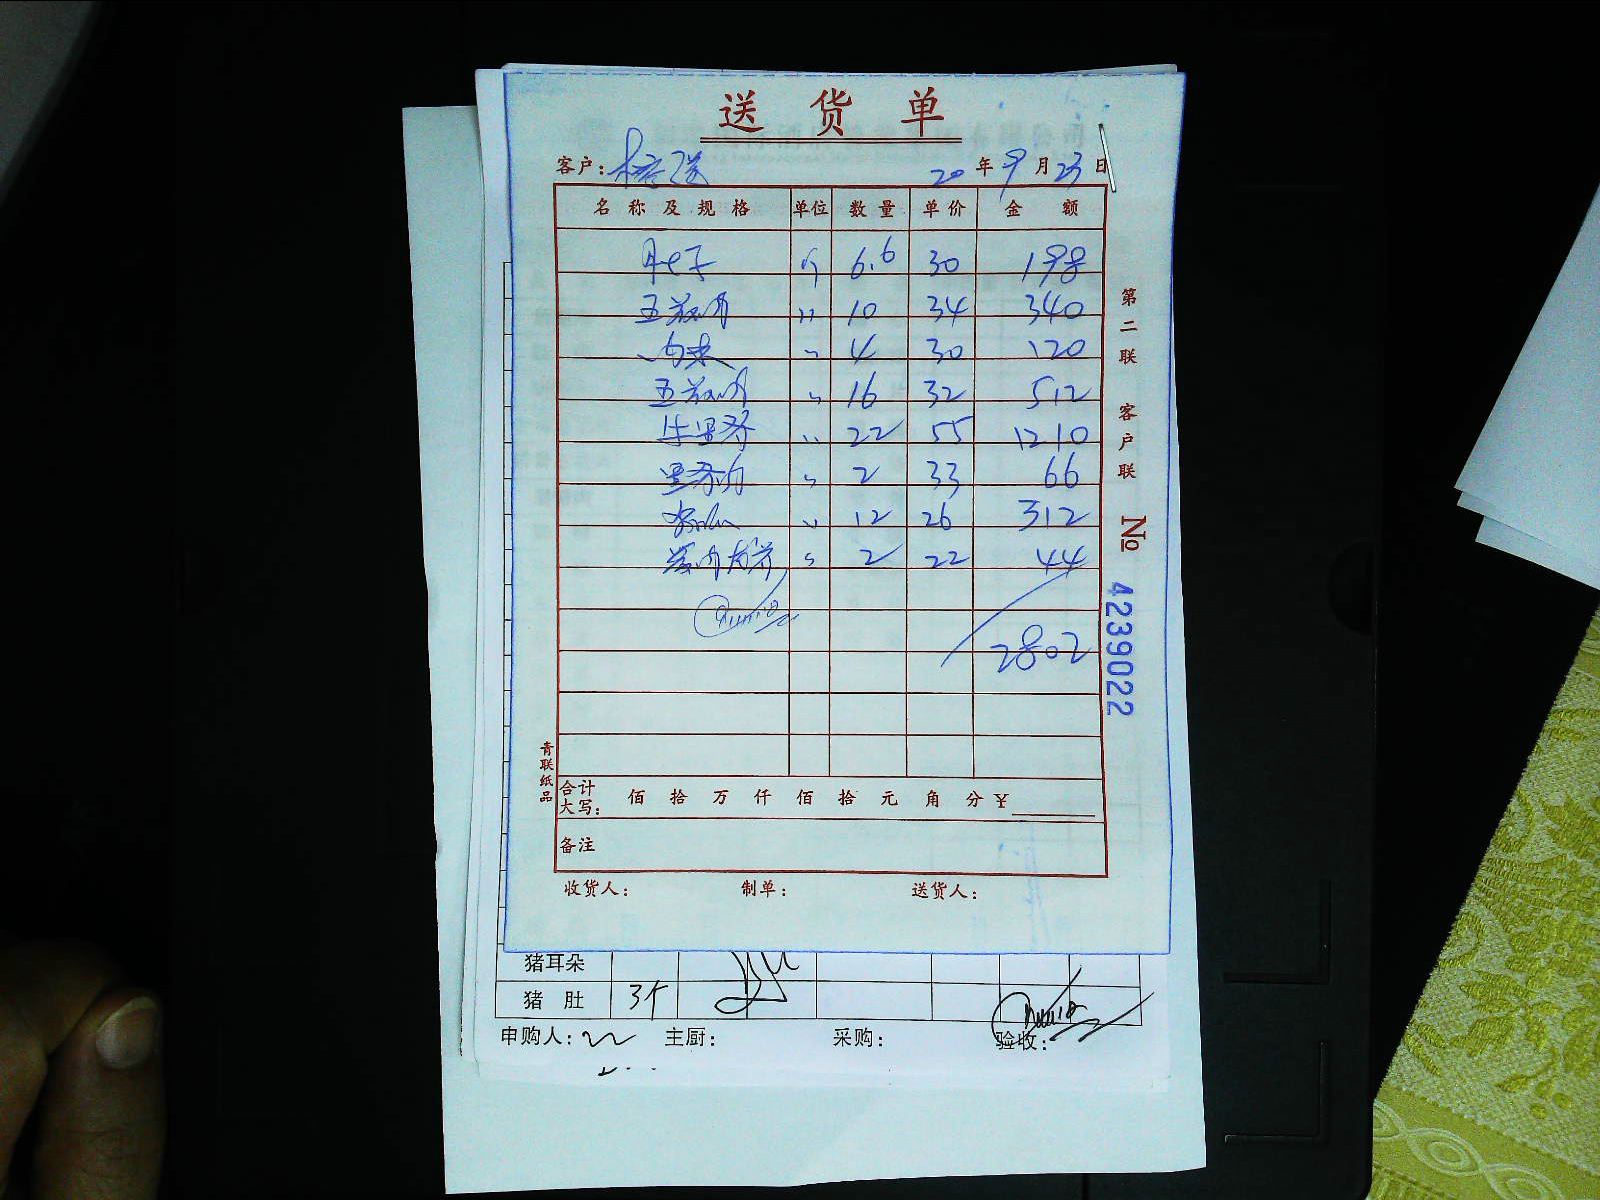 送货单
客户: 20年9月23日
名称及规格 单位 数量 单价 金额
肚子 个 6.6 30 198
五花肉 〃 10 34 340
肉末 〃 4 30 120
五花肉 〃 16 32 512
牛里脊 〃 22 55 1210
里脊肉 〃 2 33 66
〃 12 26 312
〃 2 22 44
2802
第二联 客户联 № 4239022
青联纸品
合计大写: 佰 拾 万 仟 佰 拾 元 角 分 ¥
备注
收货人: 制单: 送货人:
猪耳朵
猪肚 3个
申购人: 主厨: 采购: 验收: